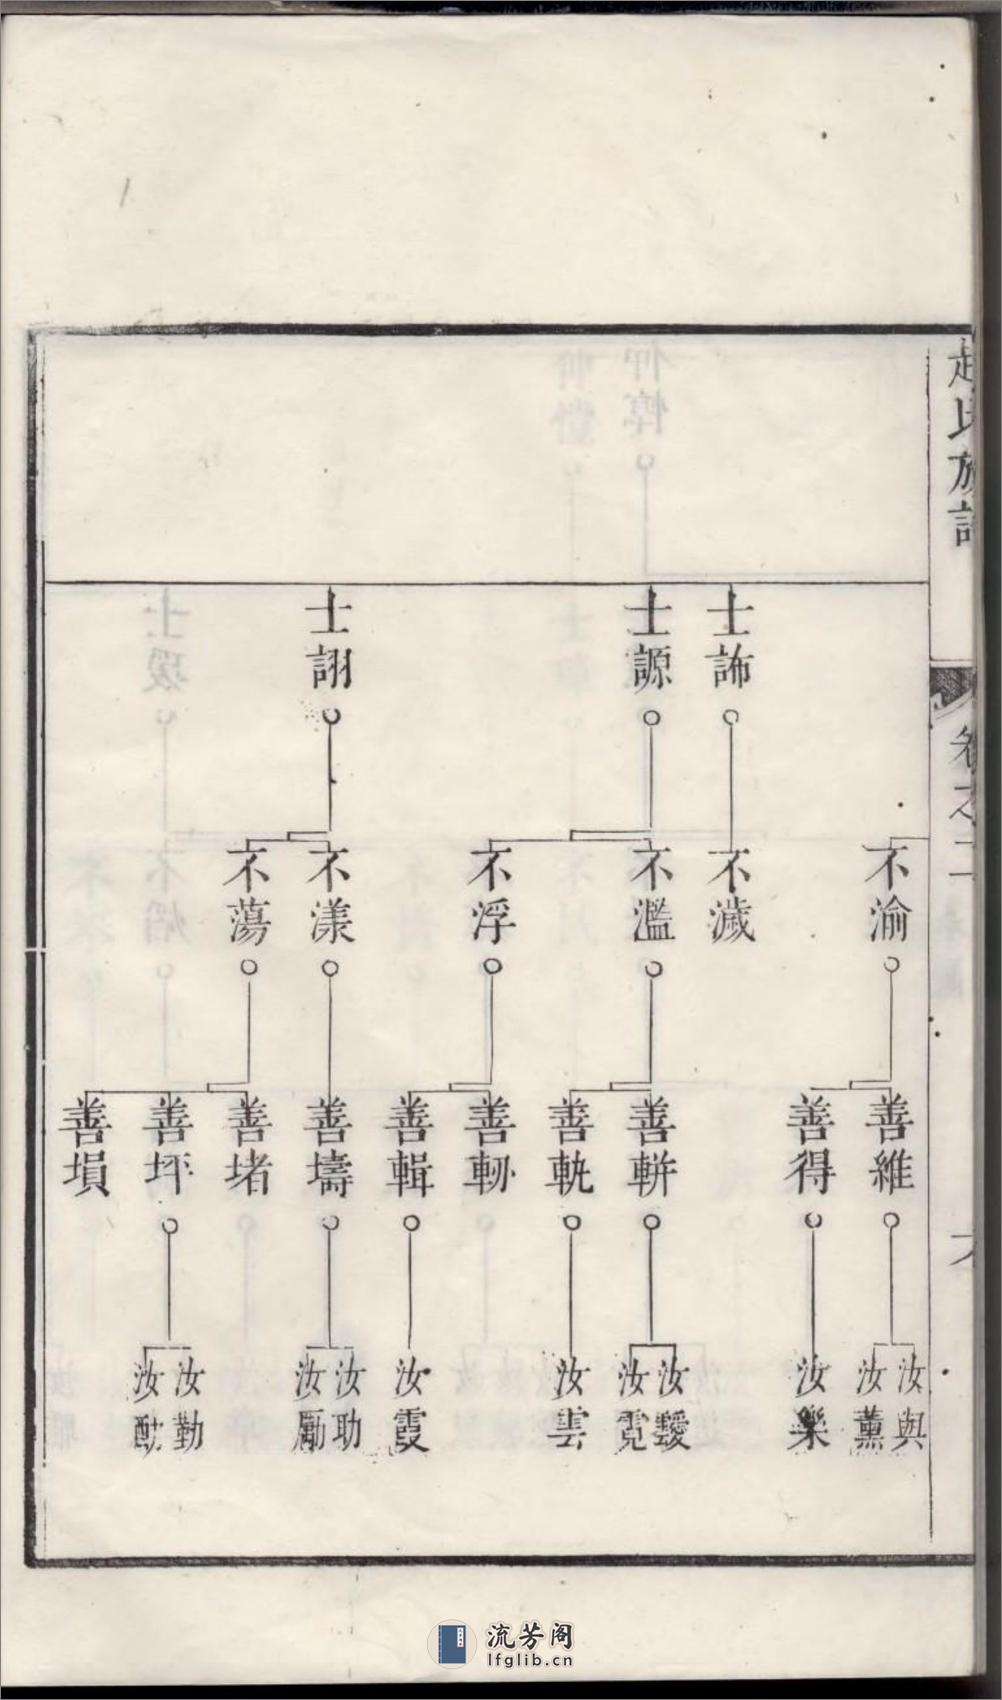 趙氏族譜
卷之二
不渝
善維
汝與
汝薰
善得
汝樂
士䛔
不濊
士謜
不濫
善輧
汝靉
汝霓
善軏
汝雲
不浮
善軔
善輯
汝霞
士詡
不漾
善壔
汝助
汝勵
不蕩
善堵
善坪
汝勤
汝勛
善塤
流芳阁
lfglib.cn